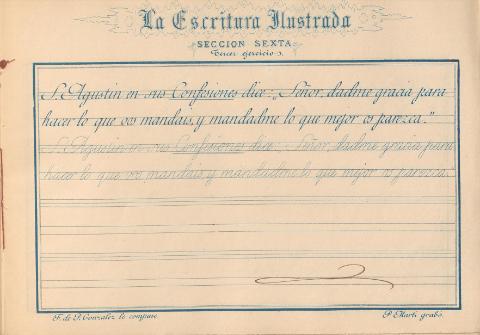 La Escritura Ilustrada
SECCION SEXTA
Tercer ejercicio.
S. Agustin en sus Confesiones dice: „Señor, dadme gracia para
hacer lo que vos mandais, y mandadme lo que mejor os parezca."
S. Agustin en sus Confesiones dice: „Señor, dadme gracia para
hacer lo que vos mandais, y mandadme lo que mejor os parezca."
F. de P. Gonzalez lo compuso.
P. Marti grabó.